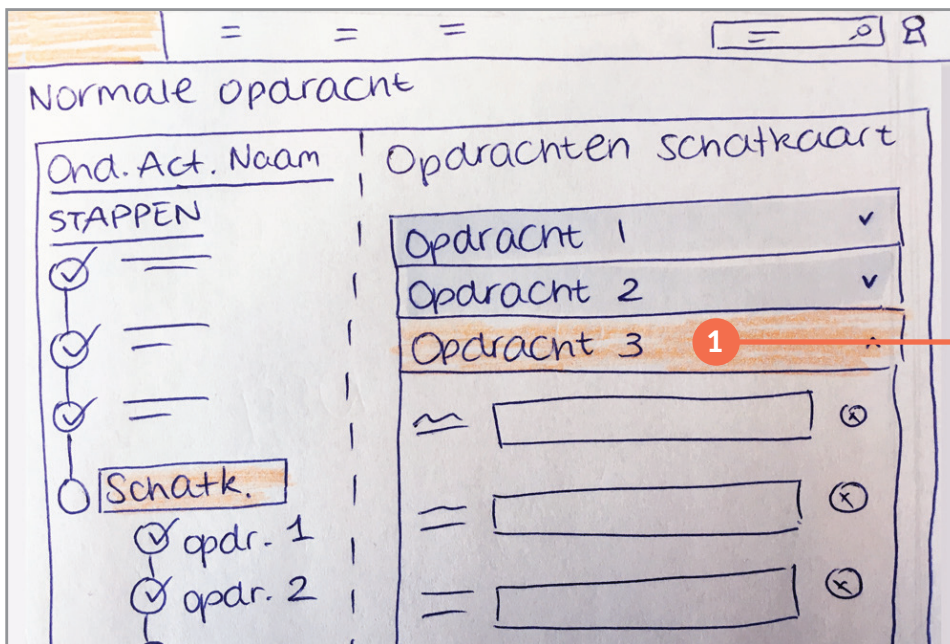 Normale opdracht
Ond. Act. Naam
STAPPEN
Schatk.
opdr. 1
opdr. 2
Opdrachten schatkaart
Opdracht 1
Opdracht 2
Opdracht 3
1